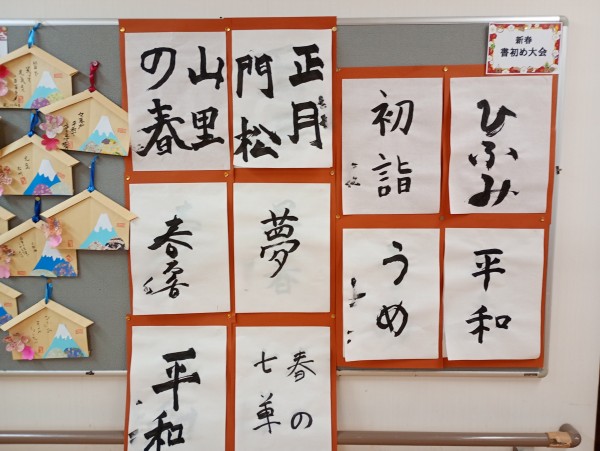 新春
書初め大会
ひふみ
初詣
平和
うめ
正月
門松
山里
の春
夢
春の
七草
平和